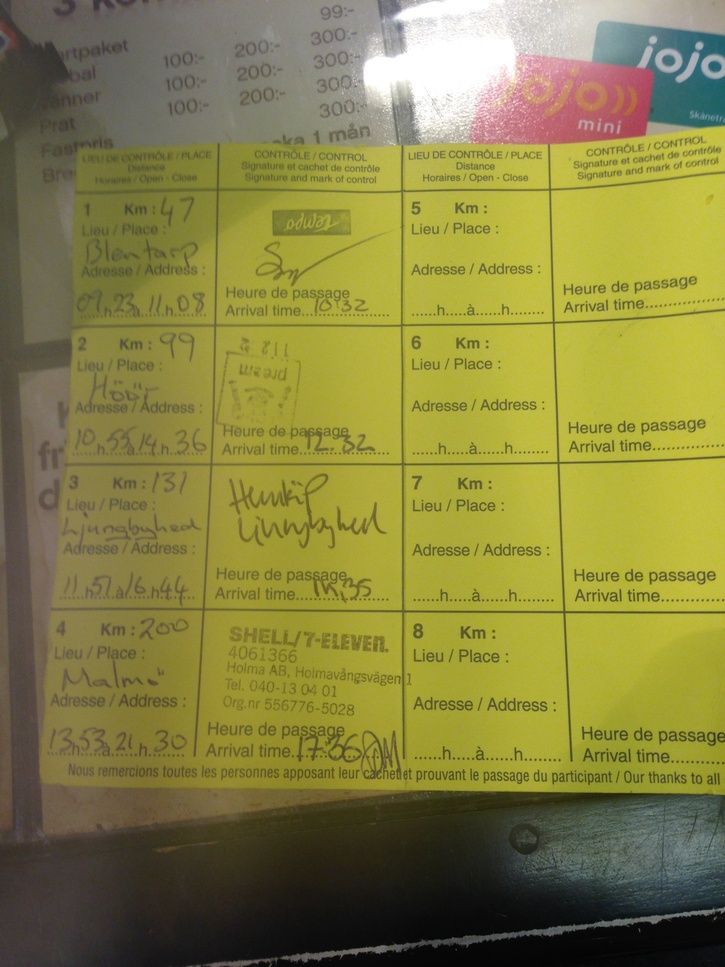 3
99:-
100:- 200:- 300:-
100:- 200:- 300:-
100:- 200:- 300:-
Prat
Fastpris
1 mån
jojo))
mini
jojo
LIEU DE CONTRÔLE / PLACE
Distance
Horaires / Open - Close
CONTRÔLE / CONTROL
Signature et cachet de contrôle
Signature and mark of control
LIEU DE CONTRÔLE / PLACE
Distance
Horaires / Open - Close
CONTRÔLE / CONTROL
Signature et cachet de contrôle
Signature and mark of control
1 Km : 47
Lieu / Place :
Blentarp
Adresse / Address :
09 h 23 à 11 h 08
Tempo
Heure de passage
Arrival time...10:32
5 Km :
Lieu / Place :
Adresse / Address :
......h.....à......h........
Heure de passage
Arrival time....................
2 Km : 99
Lieu / Place :
Höör
Adresse / Address :
10 h 55 à 14 h 36
pream
Heure de passage
Arrival time..12.32
6 Km :
Lieu / Place :
Adresse / Address :
......h.....à......h........
Heure de passage
Arrival time....................
3 Km : 131
Lieu / Place :
Ljungbyhed
Adresse / Address :
11 h 51 à 16 h 44
Ljungbyhed
Heure de passage
Arrival time...14,35
7 Km :
Lieu / Place :
Adresse / Address :
......h.....à......h........
Heure de passage
Arrival time....................
4 Km : 200
Lieu / Place :
Malmö
Adresse / Address :
13 h 53 à 21 h 30
SHELL/7-ELEVEN.
4061366
Holma AB, Holmavångsvägen 1
Tel. 040-13 04 01
Org.nr 556776-5028
Heure de passage
Arrival time..17:36
8 Km :
Lieu / Place :
Adresse / Address :
......h.....à......h........
Heure de passage
Arrival time....................
Nous remercions toutes les personnes apposant leur cachet et prouvant le passage du participant / Our thanks to all